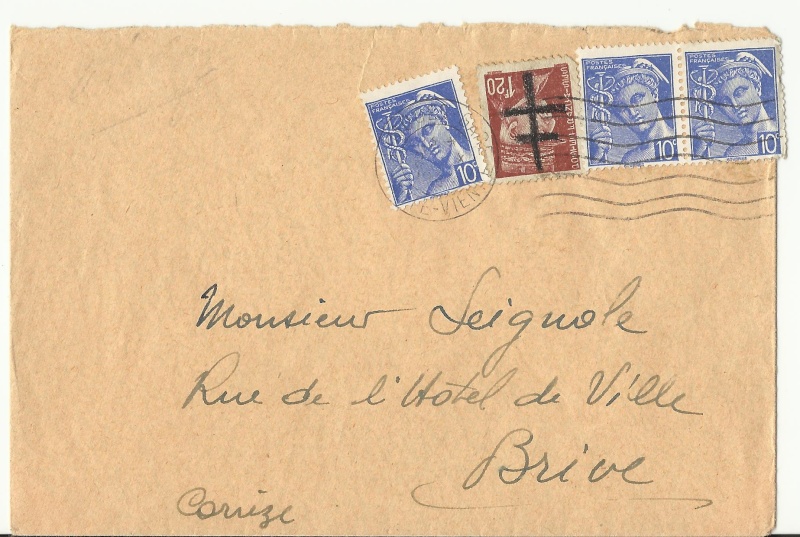 POSTES FRANÇAISES
10c
1F20
POSTES FRANÇAISES
10c
POSTES FRANÇAISES
10c
E-VIEN
Monsieur Seignole
Rue de l'Hôtel de Ville
Brive
Corrèze